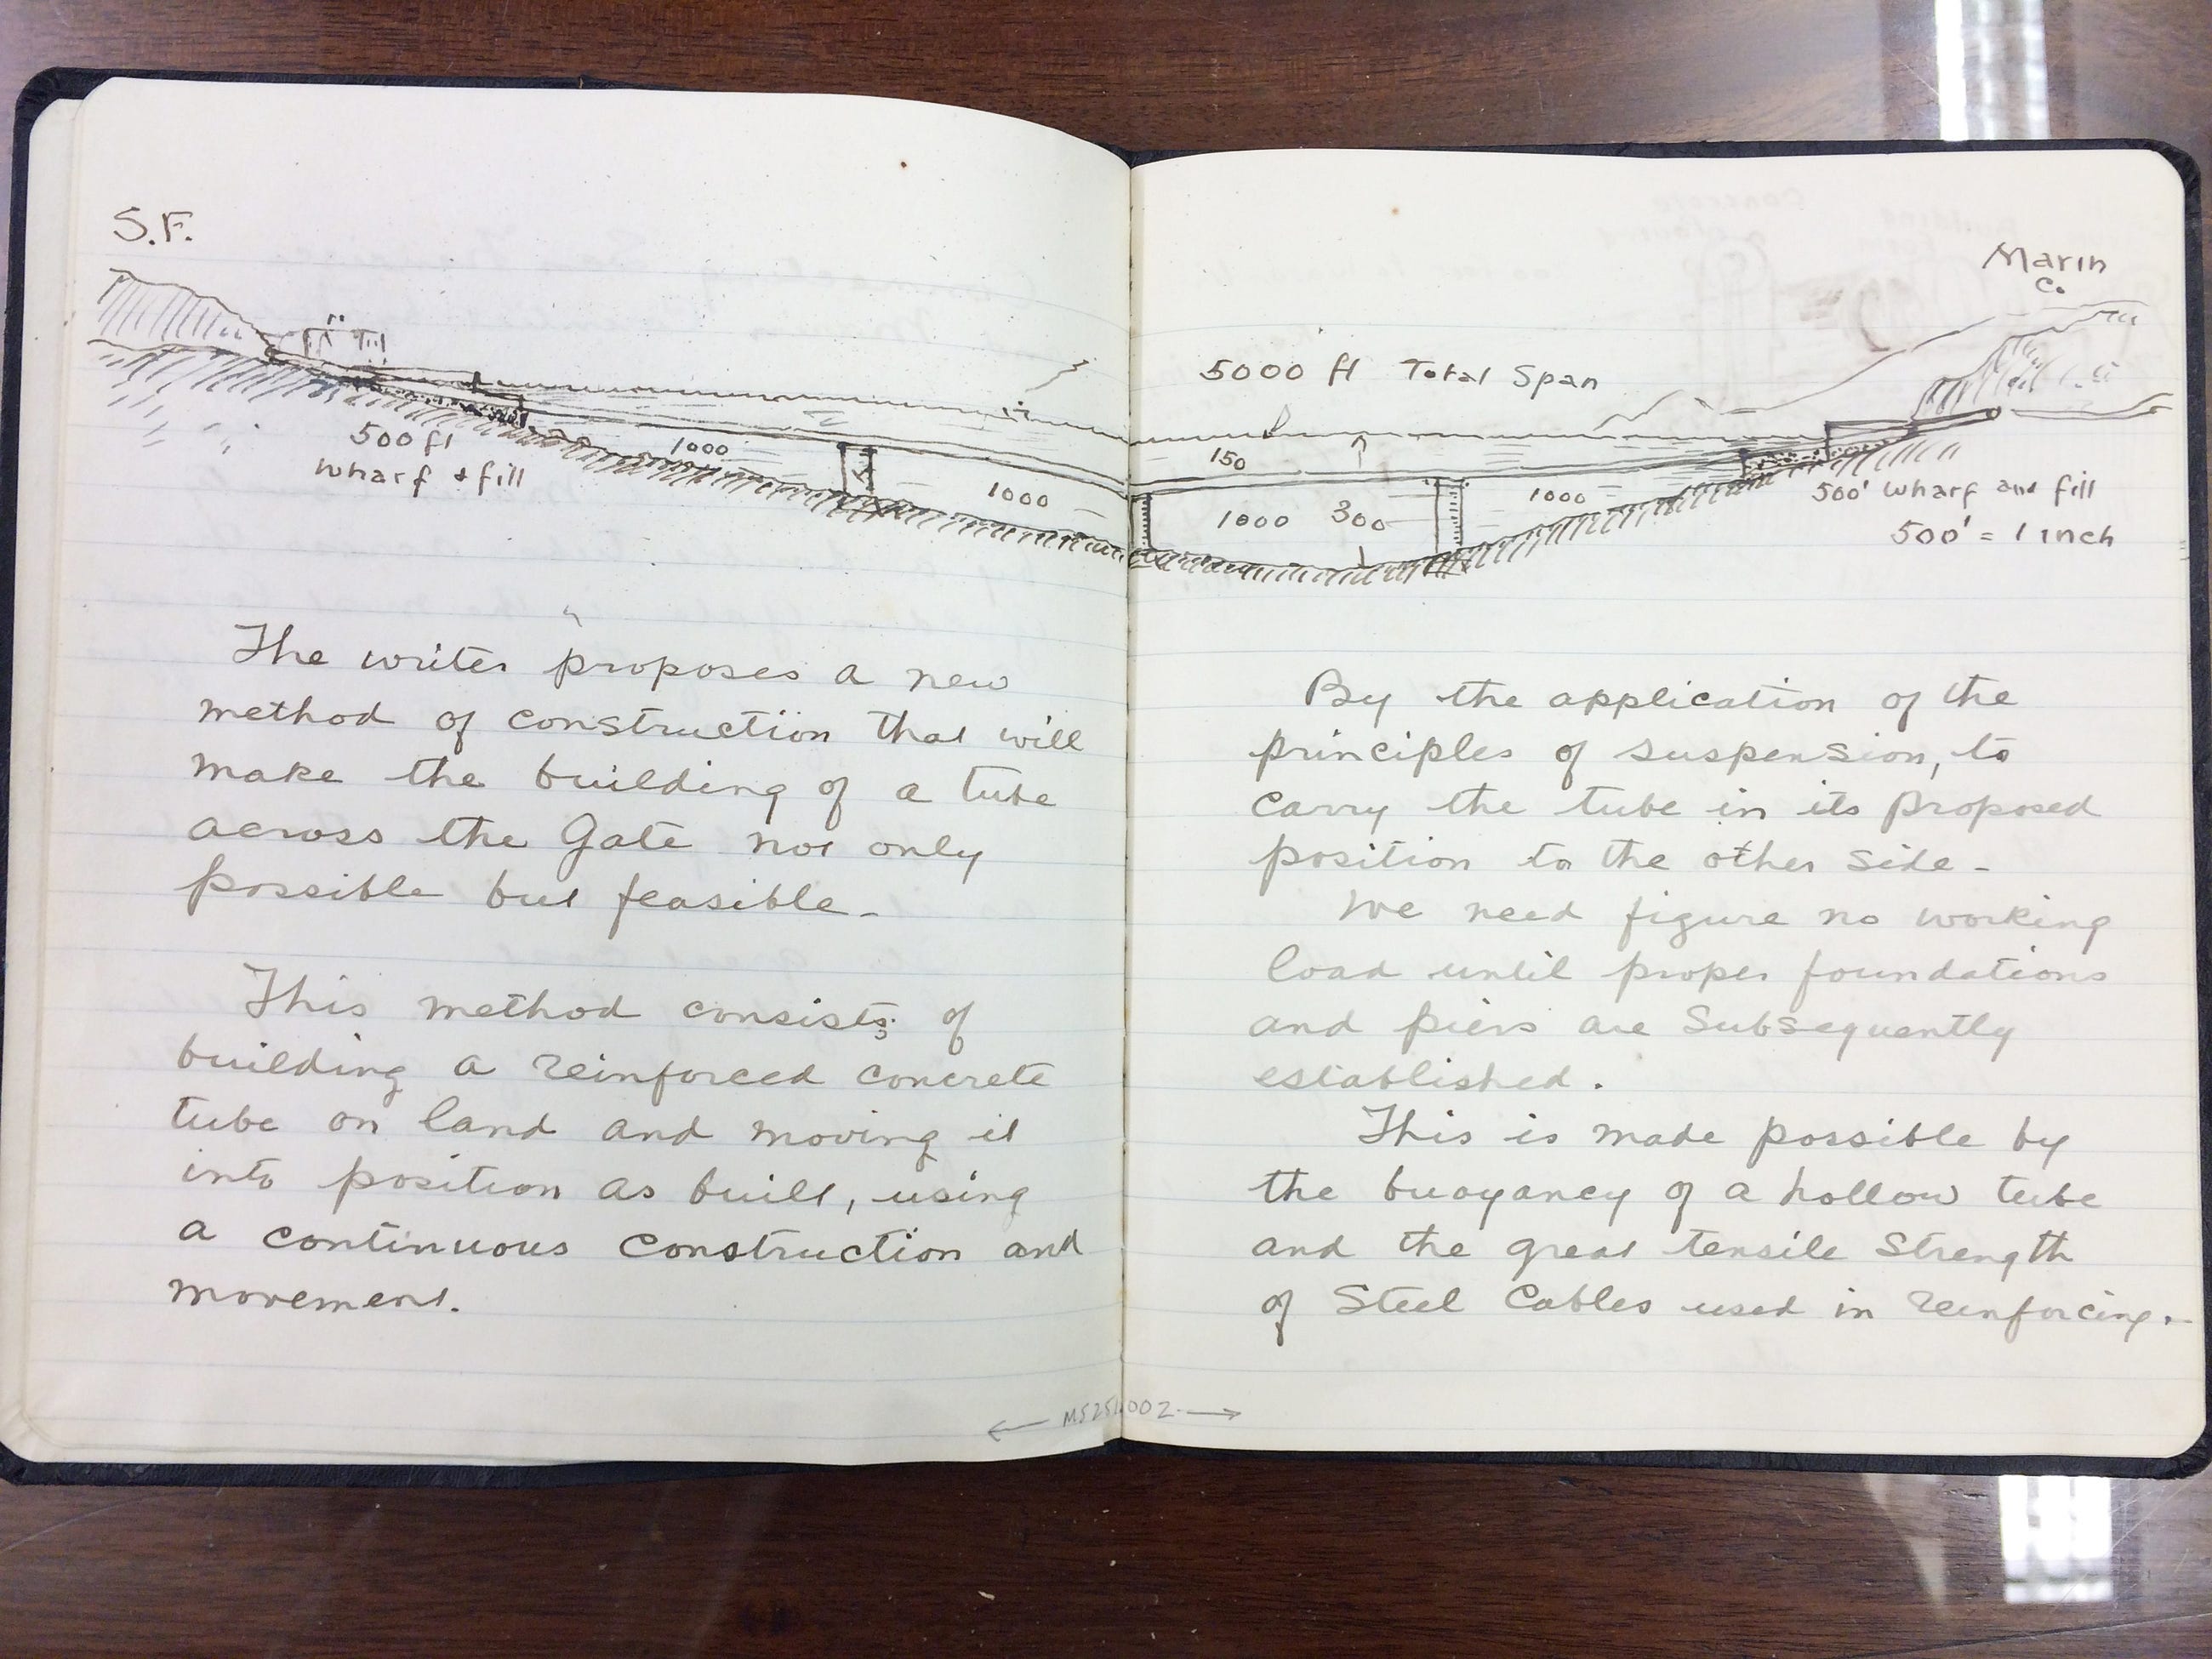 S.F.
500 ft
wharf & fill
1000
1000
The writer proposes a new
method of construction that will
make the building of a tube
across the Gate not only
possible but feasible.
This method consists of
building a reinforced concrete
tube on land and moving it
into position as built, using
a continuous construction and
movement.
Marin
Co.
5000 ft Total Span
150
1000 300
1000
500' wharf and fill
500' = 1 inch
By the application of the
principles of suspension, to
carry the tube in its proposed
position to the other side -
We need figure no working
load until proper foundations
and piers are Subsequently
established.
This is made possible by
the buoyancy of a hollow tube
and the great tensile Strength
of Steel Cables used in reinforcing.